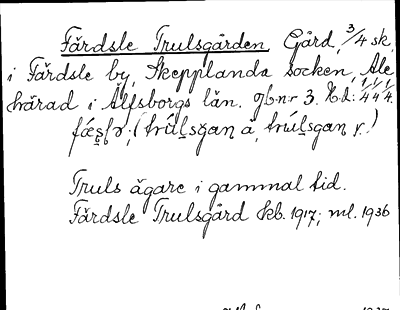 Färdsle Trulsgården Gård, 3/4 sk.
i Färdsle by, Skepplanda socken, Ale
härad i Älfsborgs län. gb.nr 3. Kl: 1/4 1/4 1/4.
(trúlsgan å, trúlsgan r.)
Truls ägare i gammal tid.
Färdsle Trulsgård kb. 1917; ml. 1936